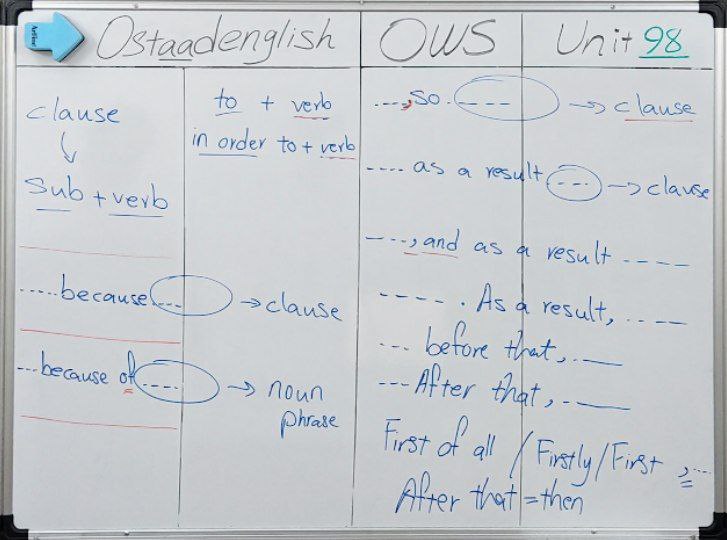 Ostaadenglish
OWS
Unit 98
clause
sub + verb
.....because....
→ clause
...because of....
→ noun
phrase
to + verb
in order to + verb
....,so.--- → clause
.... as a result --- → clause
---, and as a result ----
----. As a result, ----
--- before that, .___
--- After that, .___
First of all / Firstly / First , ...
After that = then